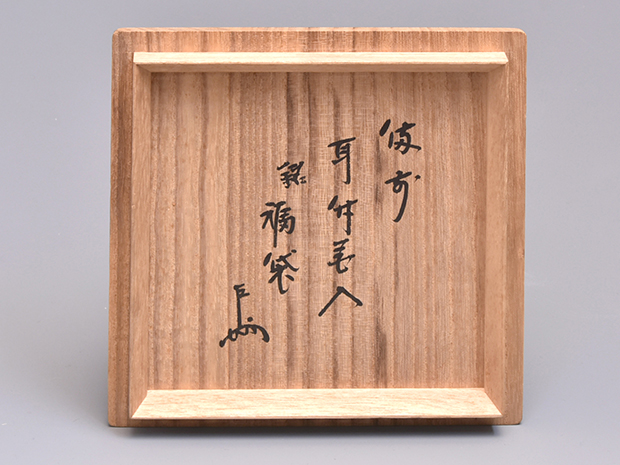 備前
耳付花入
銘
福袋